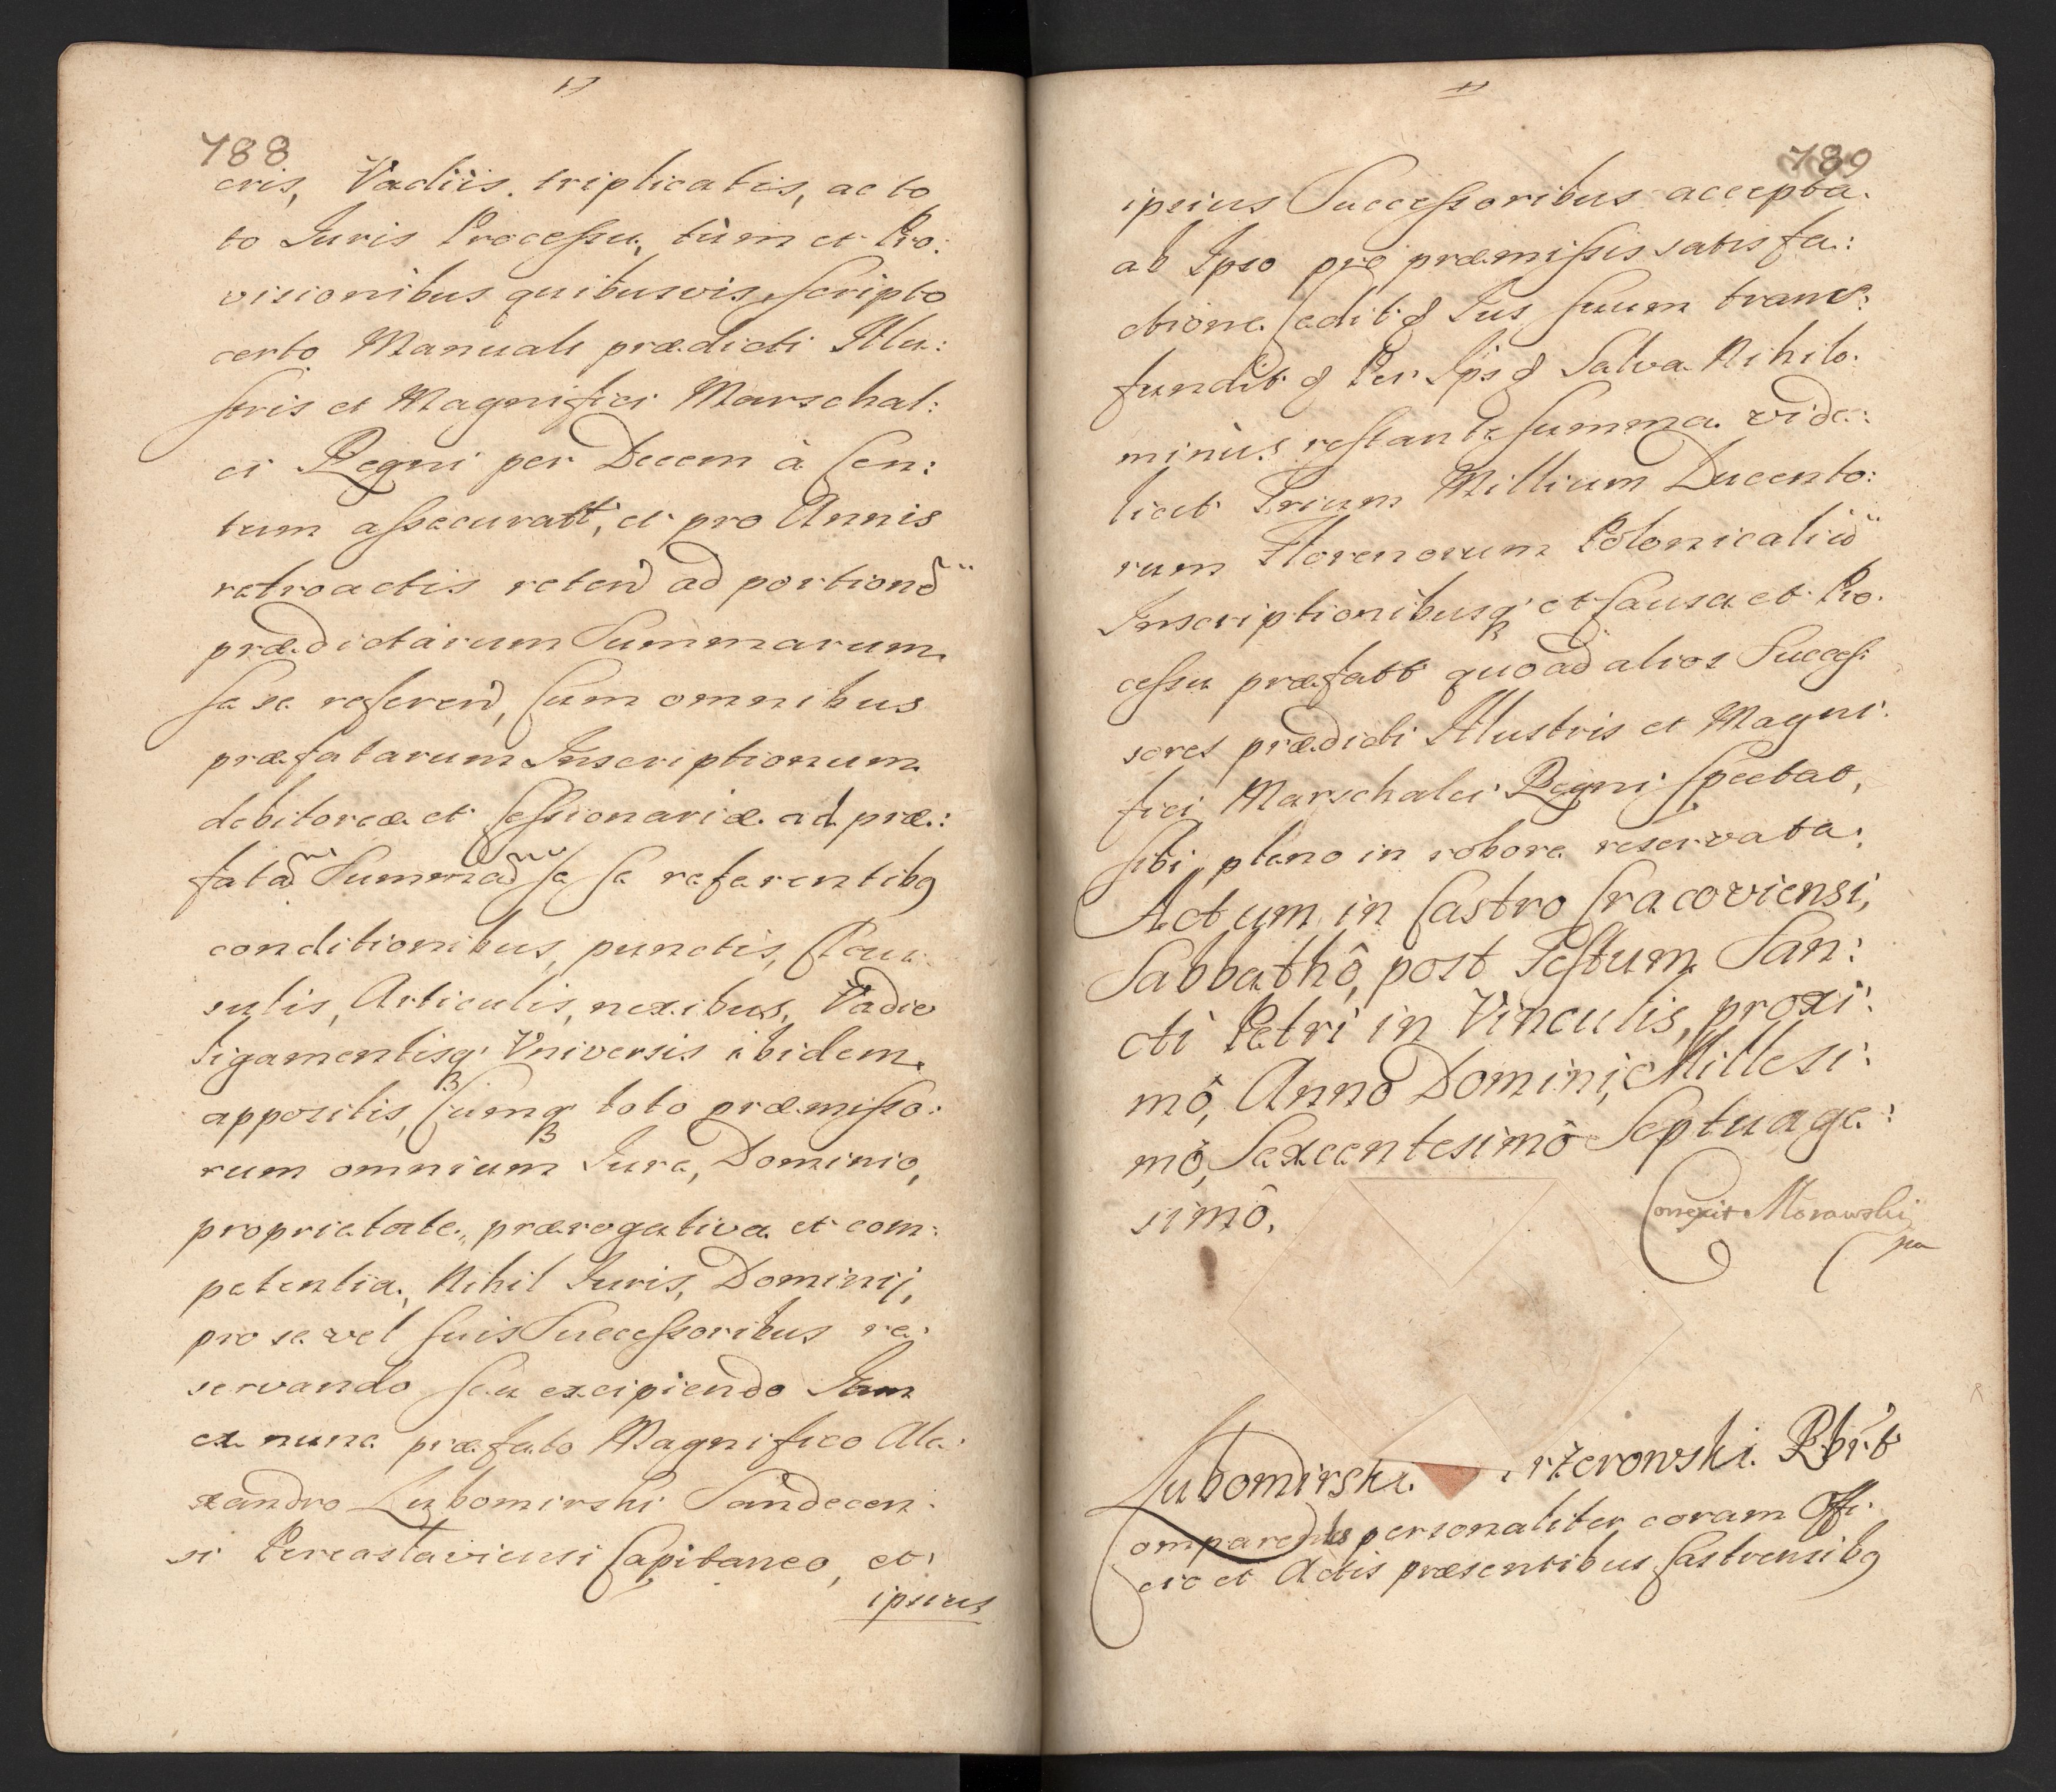 788
cris, Vadiis triplicatis, ac to
to Iuris Processu, tùm et Pro:
visionibus quibusvis, scripto
certo Manuali prædicti Illu:
stris et Magnifici Marschal:
ci Regni per Decem à Cen:
tum assecuratt, et pro Annis
retroactis reten̄d ad portionē
prædictarum Summarum
se se referen̄d, Cum omnibus
præfatarum Inscriptionum
debitoreæ et Cessionariæ ad præ:
fatā Summā se se referentibꝯ
conditionibus, punctis, Clau
sulis, Articulis, nexibus, Vadio
ligamentisqꝫ Vniversis ibidem
appositis, Cumqꝫ toto præmisso:
rum omnium Iure, Dominio,
proprietate, prærogativa et com:
petentia, Nihil Iuris, Dominij,
pro se vel suis Successoribus re:
servando seu excipiendo Iam
ex nunc præfato Magnifico Ale:
xandro Lubomirski Sandecen:
si Pereaslaviensi Capitaneo, et
ipsius
789
ipsius Successoribus accepta
ab Ipso pro præmissis satisfa:
ctione Cedit & Ius suum trans:
fundit & Per Ips & Salva Nihilo:
minùs restante summa vide:
licet Trium Millium Ducento:
rum Florenorum Polonicaliū
Inscriptionibusqꝫ et Causa et Pro:
cessu præfatt quoad alios Succes:
sores prædicti Illustris et Magni:
fici Marschalci Regni Spectat,
sibi pleno in robore reservata.
Actum in Castro Cracoviensi,
Sabbathô, post Festum San:
cti Petri in Vinculis, proxi:
mô, Annô Domini, Millesi:
mô, Sexcentesimô Septuage:
simô.
Correxit Morawski
mp
Lubomirski. rżerowski. Rbrt
Comparens personaliter coram Offi:
cio et Actis præsentibus Castrensibꝯ